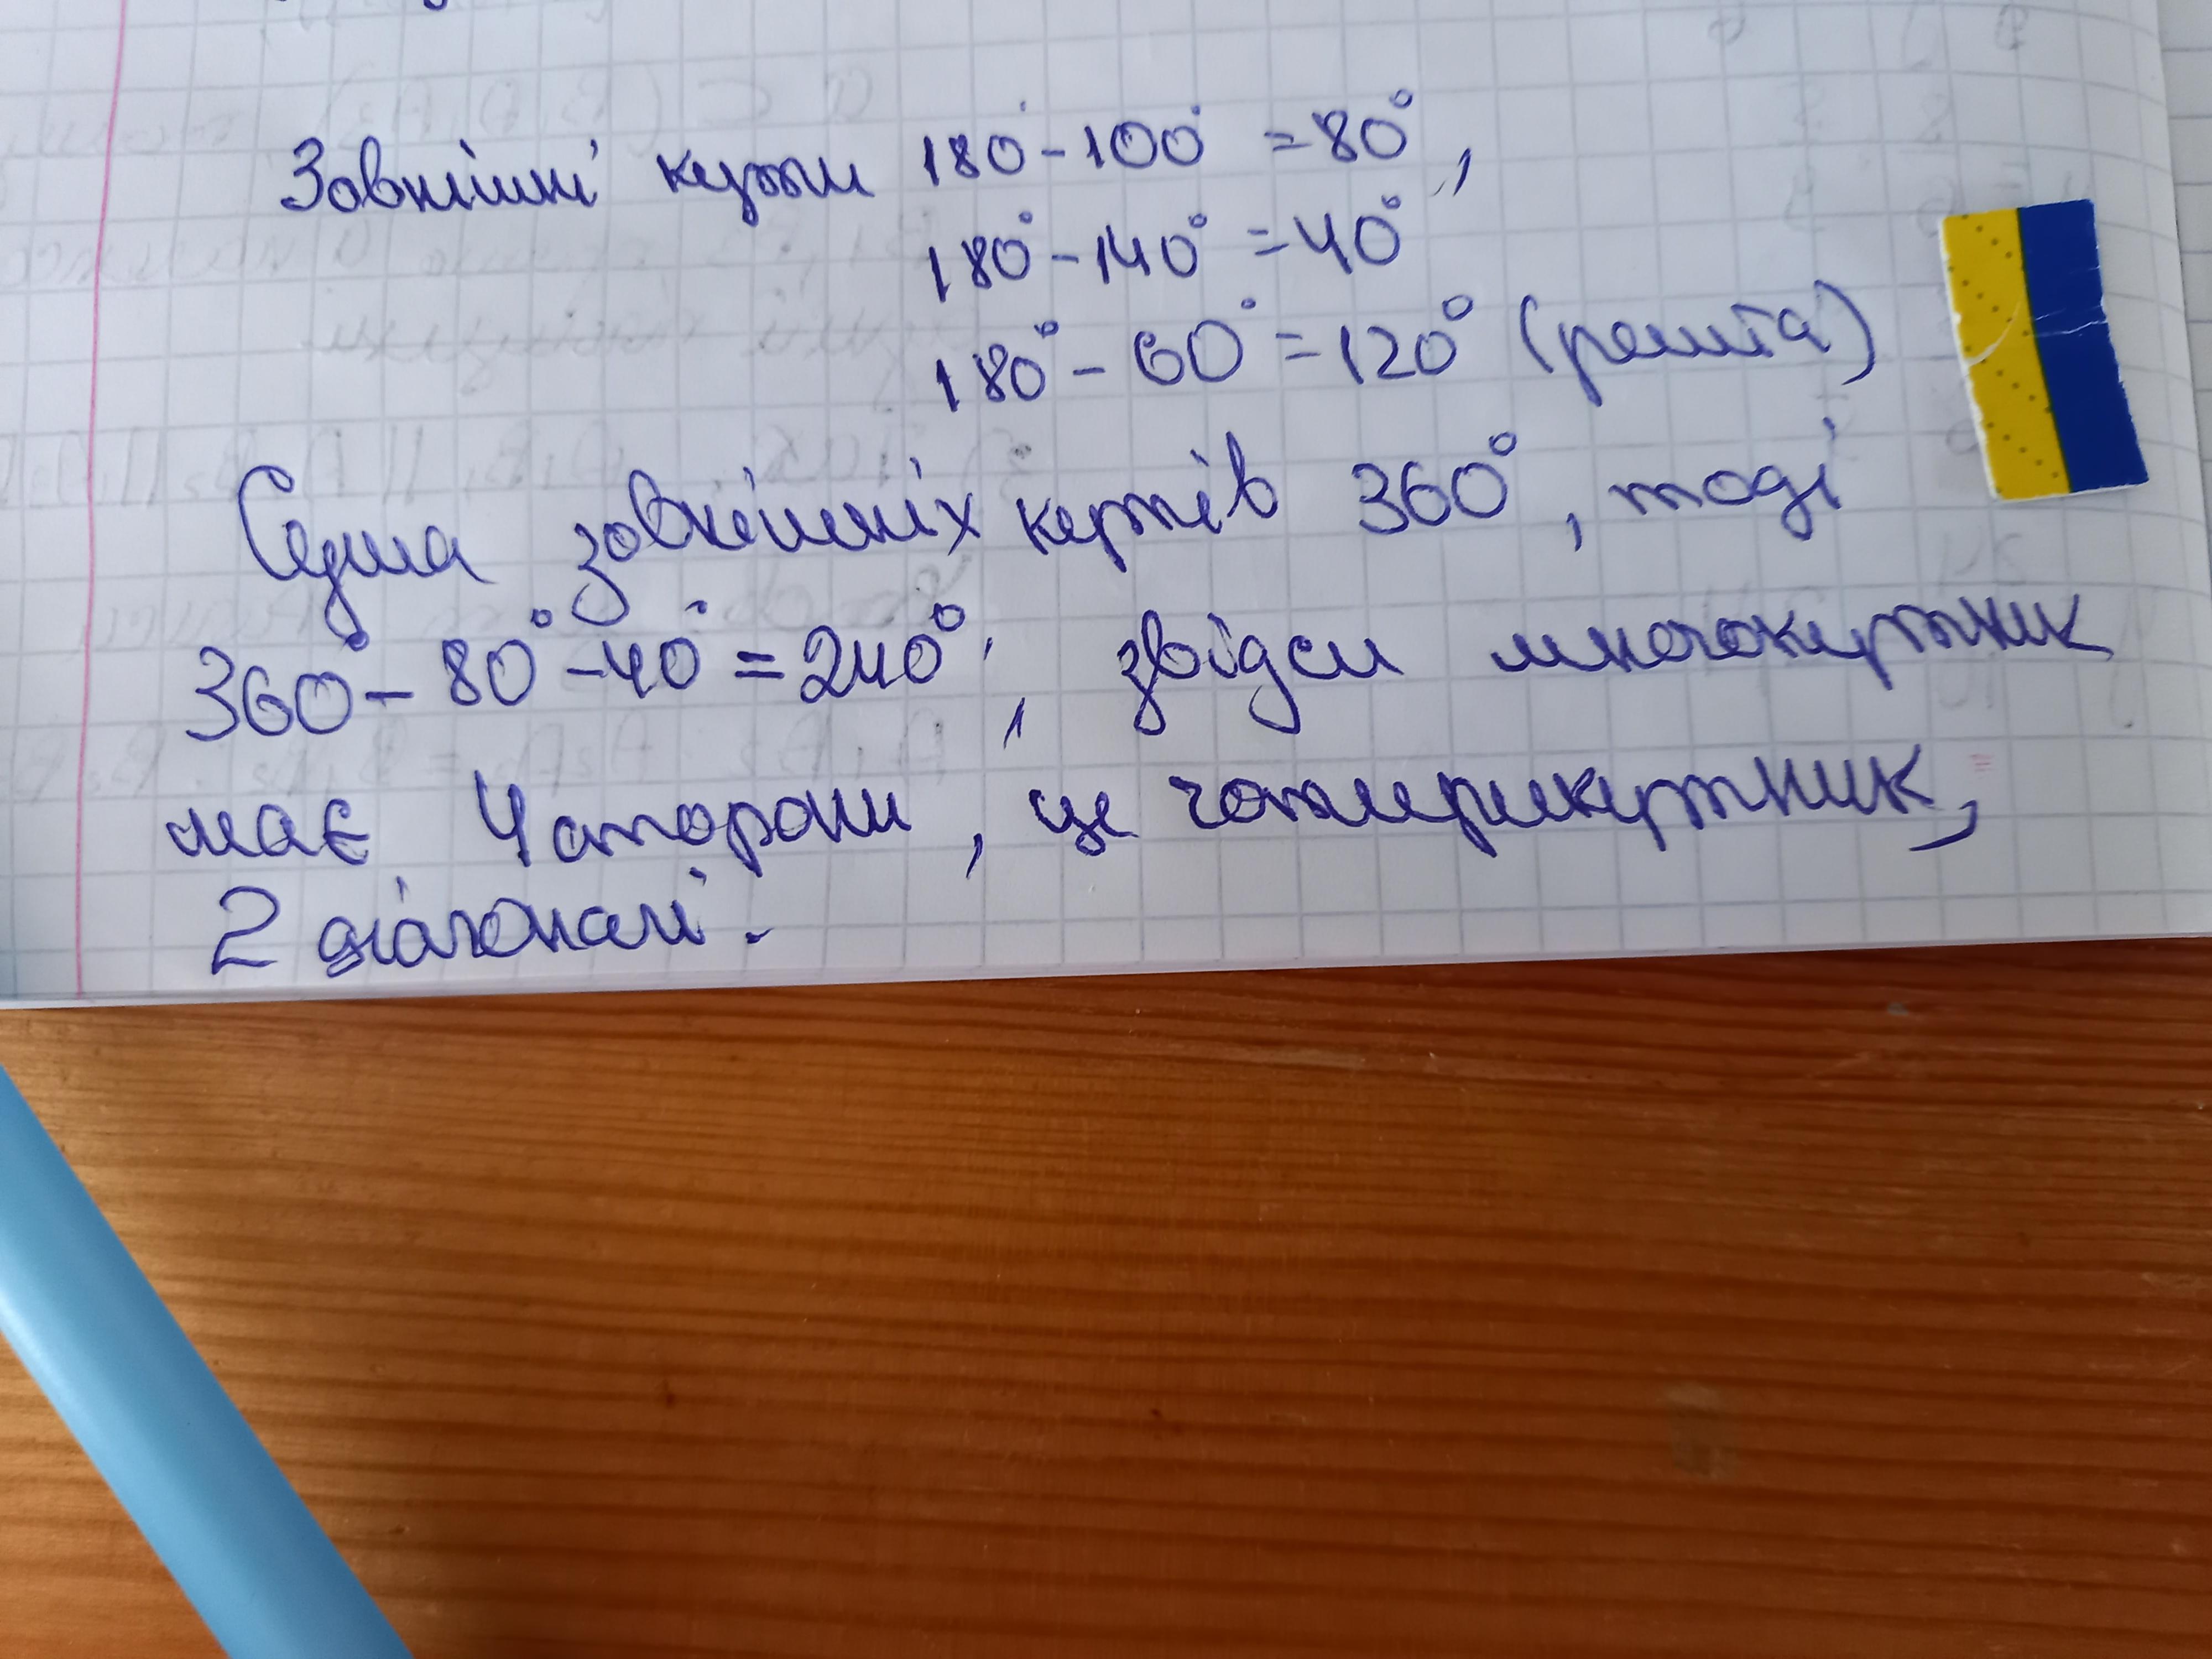 Зовнішні кути 180°-100° =80°,
180°-140° =40°
180°- 60°=120° (решта)
Сума зовнішніх кутів 360°, тоді
360°-80°-40°=240°, звідси многокутник
має 4 сторони, це чотирикутник,
2 діагоналі.